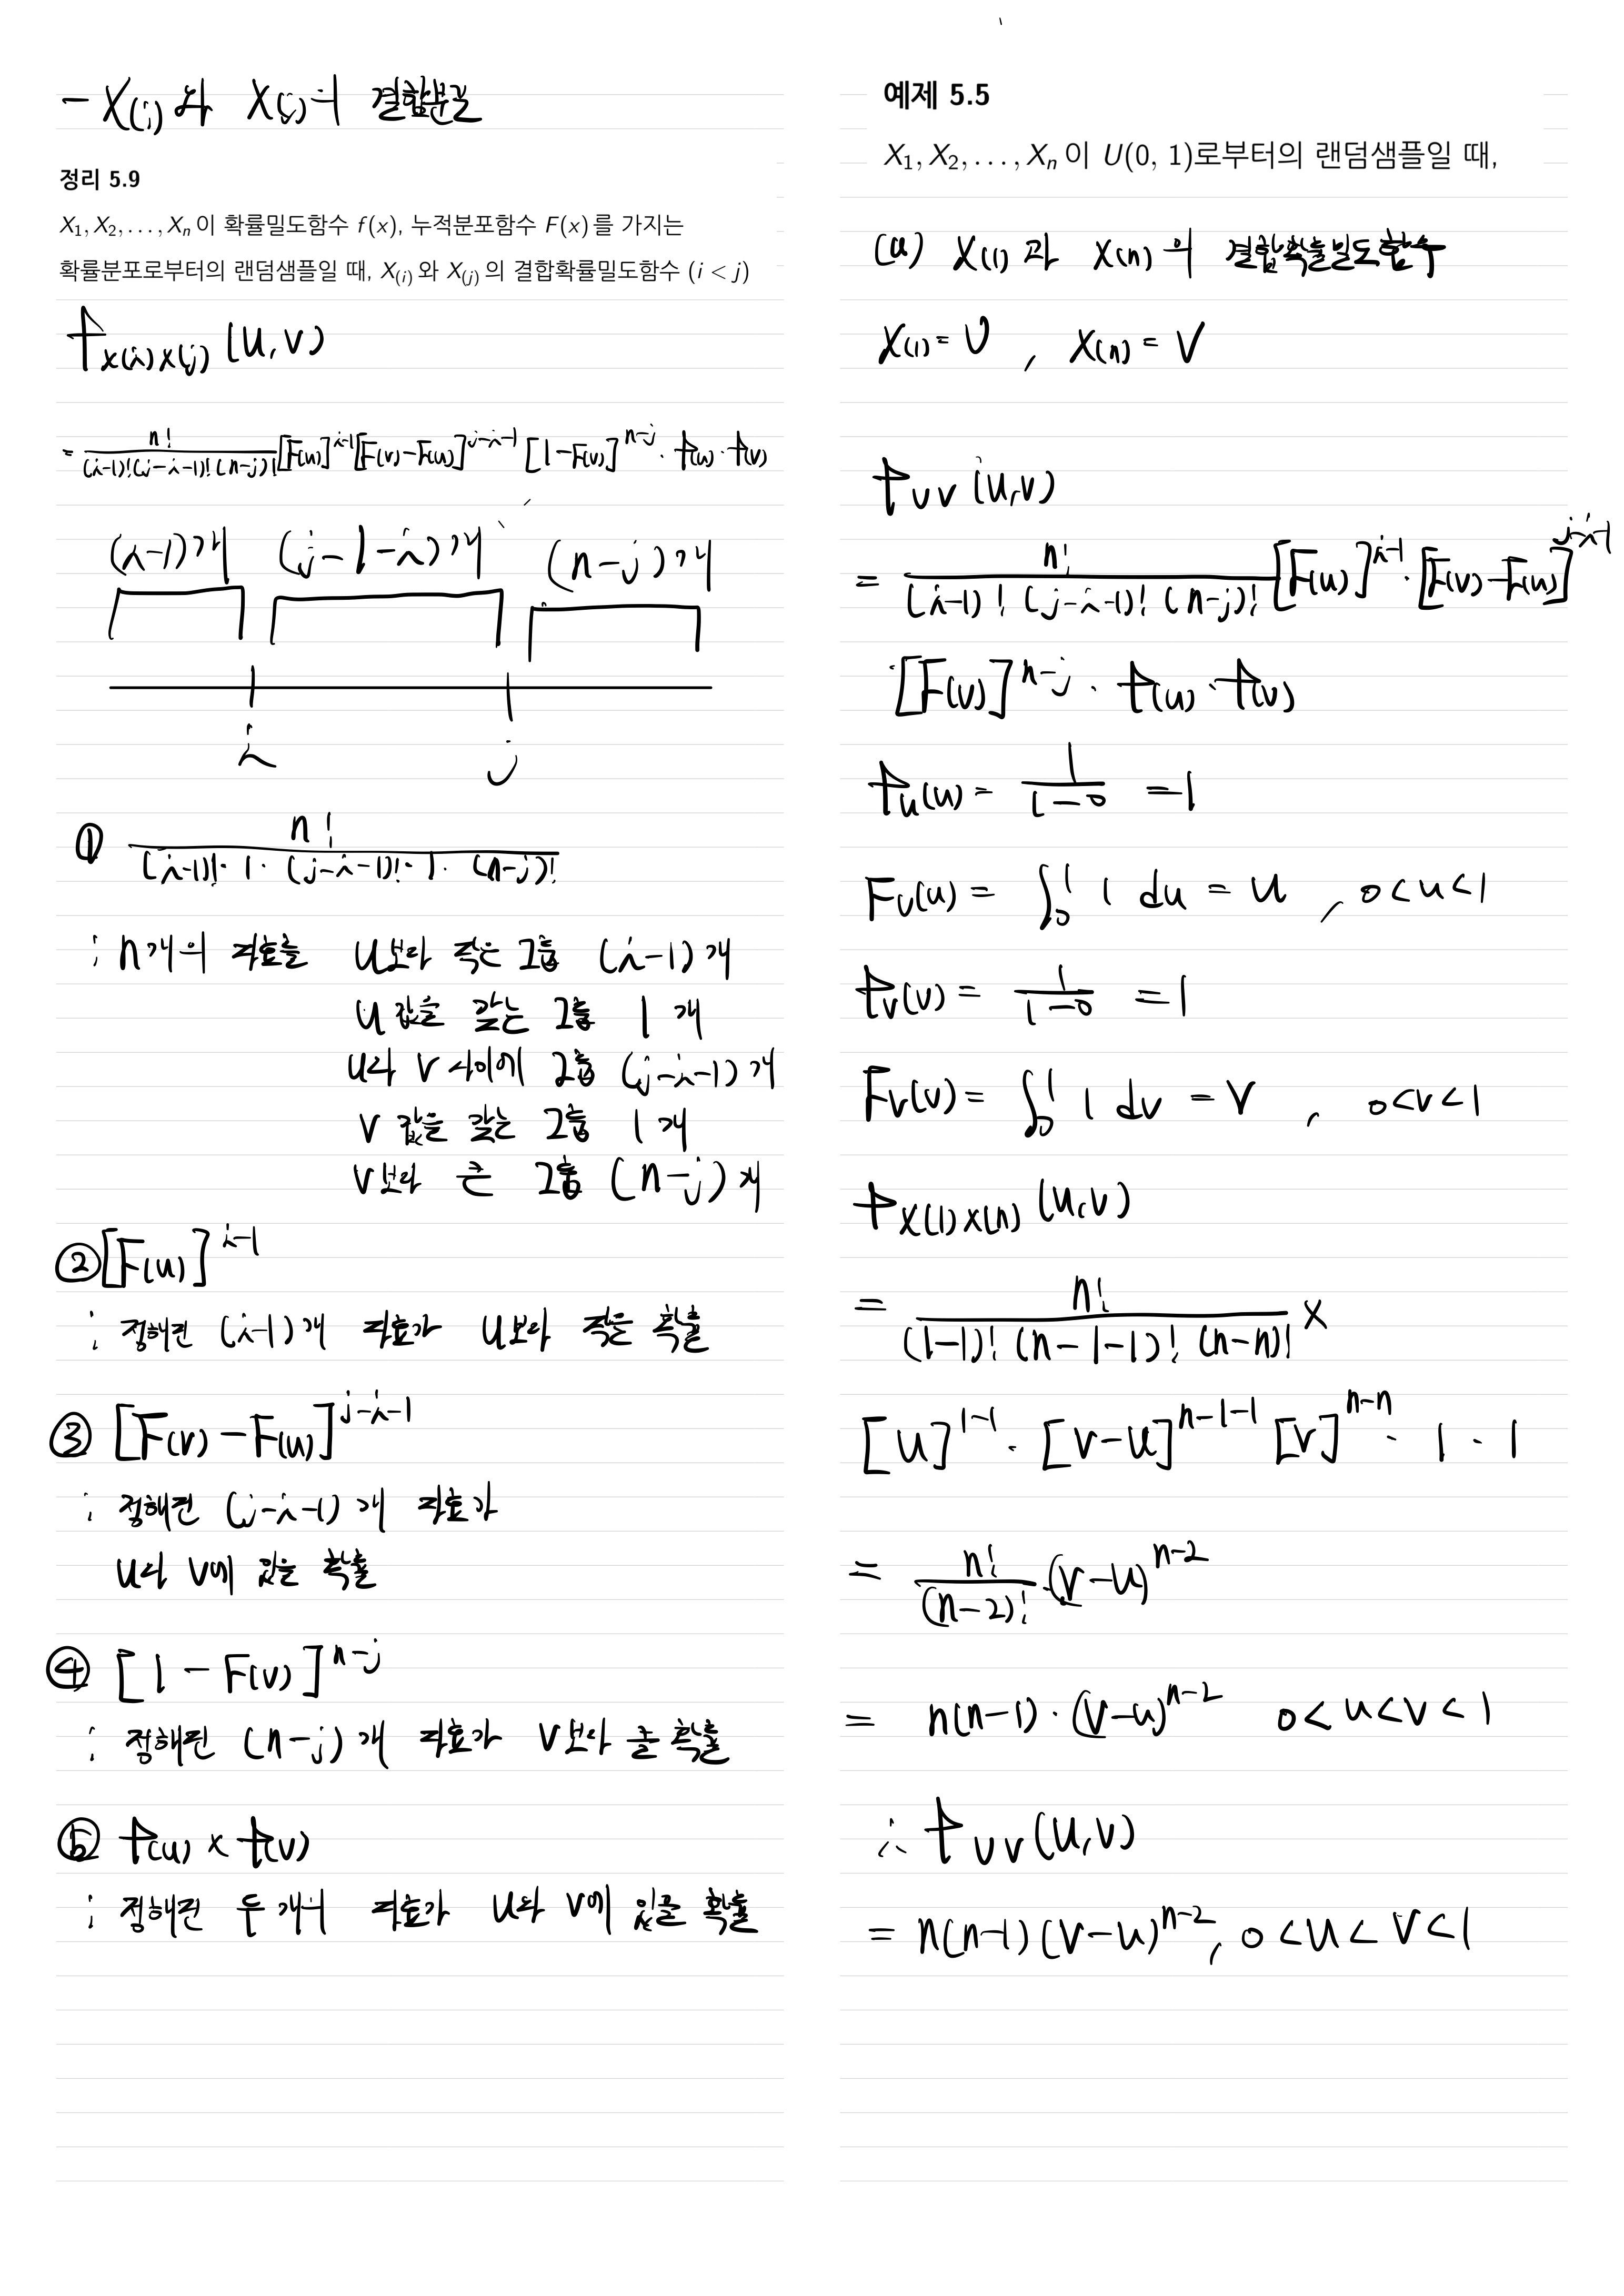 - X(i)와 X(j)의 결합분포
정리 5.9
X₁, X₂, . . . , Xₙ이 확률밀도함수 f(x), 누적분포함수 F(x)를 가지는
확률분포로부터의 랜덤샘플일 때, X(i)와 X(j)의 결합확률밀도함수 (i < j)
f_X(i)X(j) (u, v)
= n! / (i-1)!(j-i-1)!(n-j)! [F(u)]^(i-1) [F(v)-F(u)]^(j-i-1) [1-F(v)]^(n-j) · f(u) · f(v)
(i-1)개 (j-1-i)개 (n-j)개
i j
① n! / (i-1)! · 1 · (j-i-1)! · 1 · (n-j)!
: n개의 자료를 u보다 작은 그룹 (i-1)개
u 값을 갖는 그룹 1개
u와 v 사이에 그룹 (j-i-1)개
v 값을 갖는 그룹 1개
v보다 큰 그룹 (n-j)개
② [F(u)]^(i-1)
: 정해진 (i-1)개 자료가 u보다 작을 확률
③ [F(v)-F(u)]^(j-i-1)
: 정해진 (j-i-1)개 자료가
u와 v에 있을 확률
④ [1-F(v)]^(n-j)
: 정해진 (n-j)개 자료가 v보다 클 확률
⑤ f(u) × f(v)
: 정해진 두 개의 자료가 u와 v에 있을 확률
예제 5.5
X₁, X₂, . . . , Xₙ이 U(0, 1)로부터의 랜덤샘플일 때,
(a) X(1)과 X(n)의 결합확률밀도함수
X(1) = U , X(n) = V
f_UV (u, v)
= n! / (i-1)! (j-i-1)! (n-j)! [F(u)]^(i-1) · [F(v)-F(u)]^(j-i-1)
· [F(v)]^(n-j) · f(u) · f(v)
f_U(u) = 1 / (1-0) = 1
F_U(u) = ∫₀¹ 1 du = u , 0<u<1
f_V(v) = 1 / (1-0) = 1
F_V(v) = ∫₀¹ 1 dv = v , 0<v<1
f_X(1)X(n) (u, v)
= n! / (1-1)! (n-1-1)! (n-n)! ×
[u]^(1-1) · [v-u]^(n-1-1) [v]^(n-n) · 1 · 1
= n! / (n-2)! · (v-u)^(n-2)
= n(n-1) · (v-u)^(n-2) 0<u<v<1
∴ f_UV (u, v)
= n(n-1)(v-u)^(n-2), 0<u<v<1